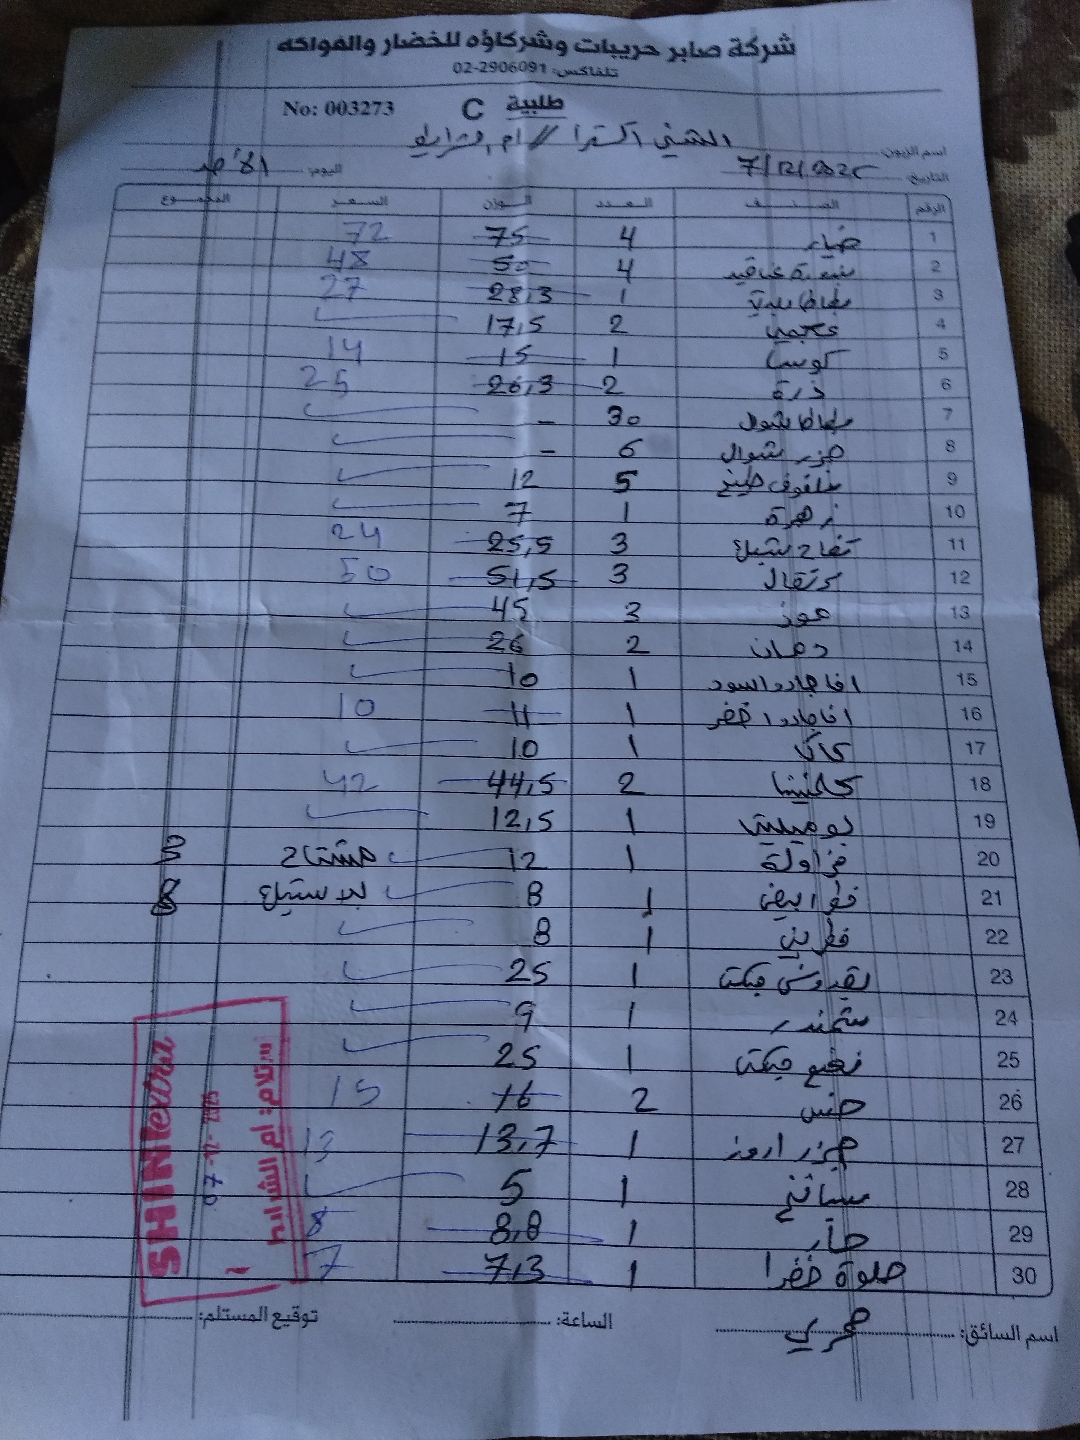 شركة صابر حريبات وشركاؤه للخضار والفواكه
تلفاكس: 02-2906091
No: 003273 C طلبية
اسم الزبون: الشني اكسترا // ام الشرايط
التاريخ: 7/12/2025 اليوم: الأحد
الرقم الصنف العدد الوزن السعر المجموع
1 خيار 4 75 72
2 بندورة عناقيد 4 50 48
3 بطاطا بلدية 1 28,3 27
4 عجمي 2 17,5
5 كوسا 1 15 14
6 ذرة 2 26,3 25
7 بطاطا شوال 30 -
8 جزر شوال 6 -
9 ملفوف صيني 5 12
10 زهرة 1 7
11 تفاح ستيلا 3 25,5 24
12 برتقال 3 51,5 50
13 موز 3 45
14 رمان 2 26
15 افاجادو اسود 1 10
16 افاجادو اخضر 1 11 10
17 كاكا 1 10
18 كلمنتينا 2 44,5 42
19 بوميلي 1 12,5
20 فراولة 1 12 مشتاح 5
21 فطر ابيض 1 8 بلاستيك 8
22 فطر بني 1 8
23 بقدونس 1 25
24 شمندر 1 9
25 نعنع 1 25
26 خس 2 16 15
27 جزر 1 13,7 13
28 سبانخ 1 5
29 حار 1 8,8 8
30 حلوة خضرا 1 7,3 7
SHINI extra
07-12-2025
استلام: ام الشرايط
اسم السائق: الساعة: توقيع المستلم: